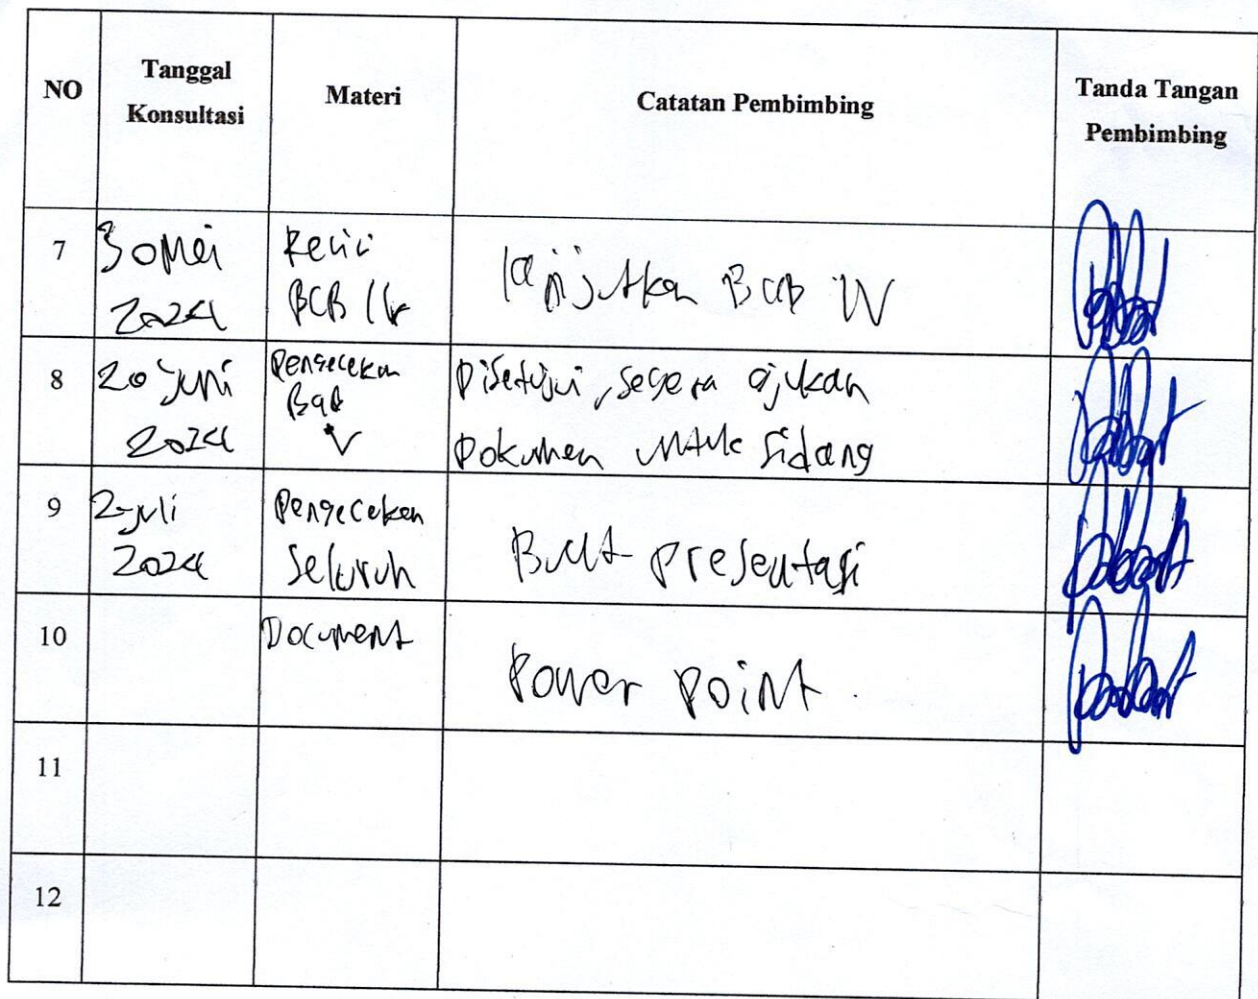 NO
Tanggal
Konsultasi
Materi
Catatan Pembimbing
Tanda Tangan
Pembimbing
7
30 Mei
2024
BCB
lanjutkan BAB IV
8
20 Juni
2024
Pengecekan
Bab
V
Disetujui, segera ajukan
Dokumen untuk Sidang
9
2 Juli
2024
Pengecekan
Seluruh
Buat presentasi
10
Document
Power Point
11
12